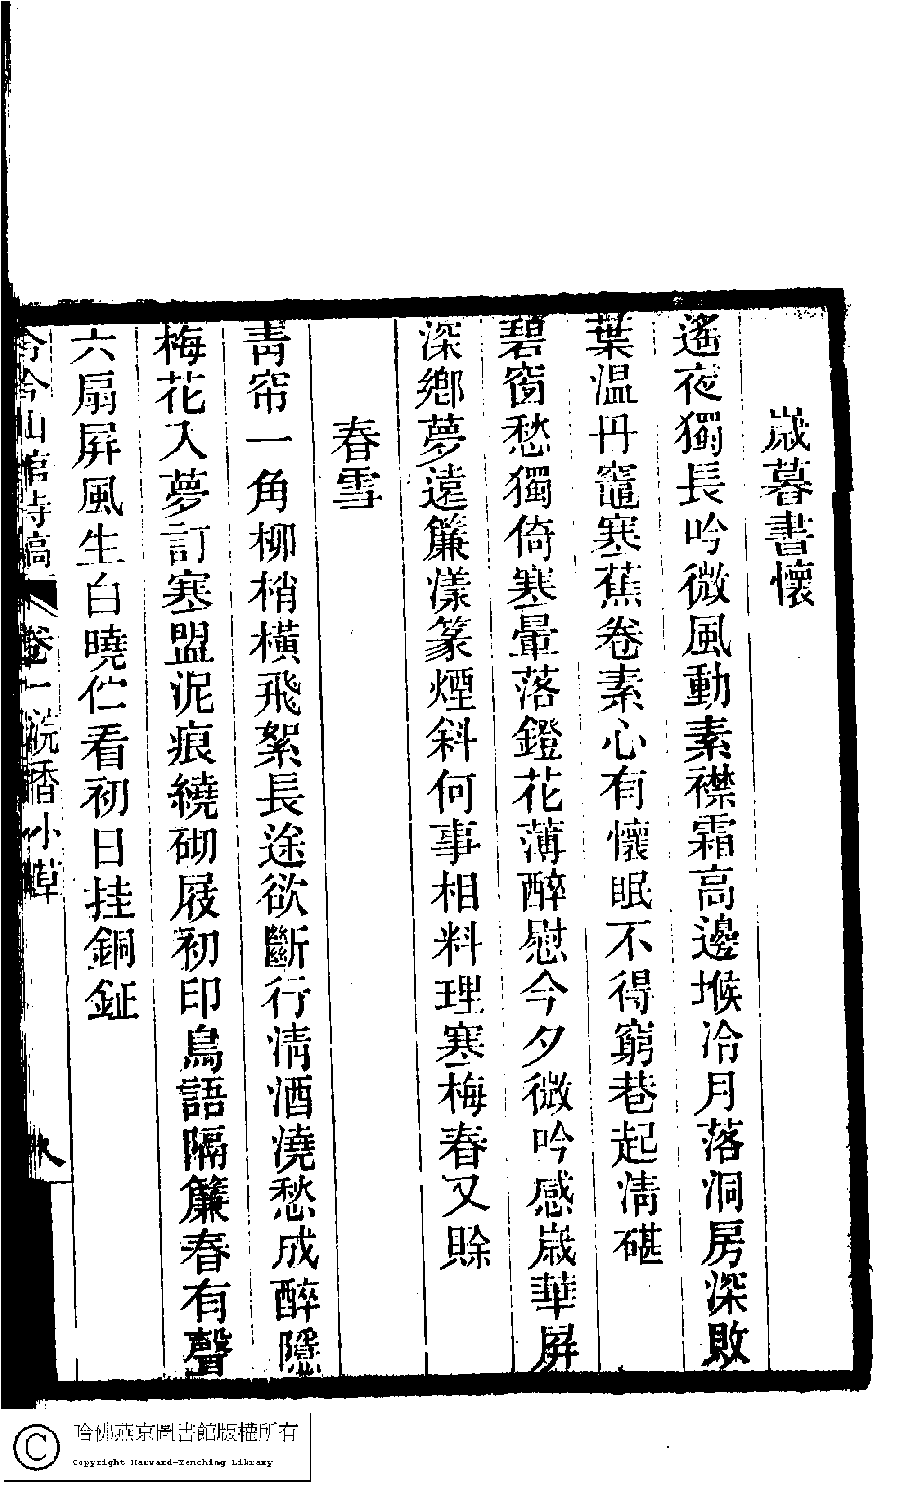 歲暮書懷
遙夜獨長吟微風動素襟霜高邊堠冷月落洞房深敗
葉溫丹竈寒蕉卷素心有懷眠不得窮巷起淸碪
碧窗愁獨倚寒暈落鐙花薄醉慰今夕微吟感歲華屛
深鄉夢遠簾漾篆煙斜何事相料理寒梅春又賒
春雪
靑帘一角柳梢橫飛絮長途欲斷行淸酒澆愁成醉隱
梅花入夢訂寒盟泥痕繞砌屐初印鳥語隔簾春有聲
六扇屛風生白曉伫看初日挂銅鉦
山館詩稿 卷一 浣香小草
哈佛燕京圖書館版權所有
Copyright Harvard-Yenching Library